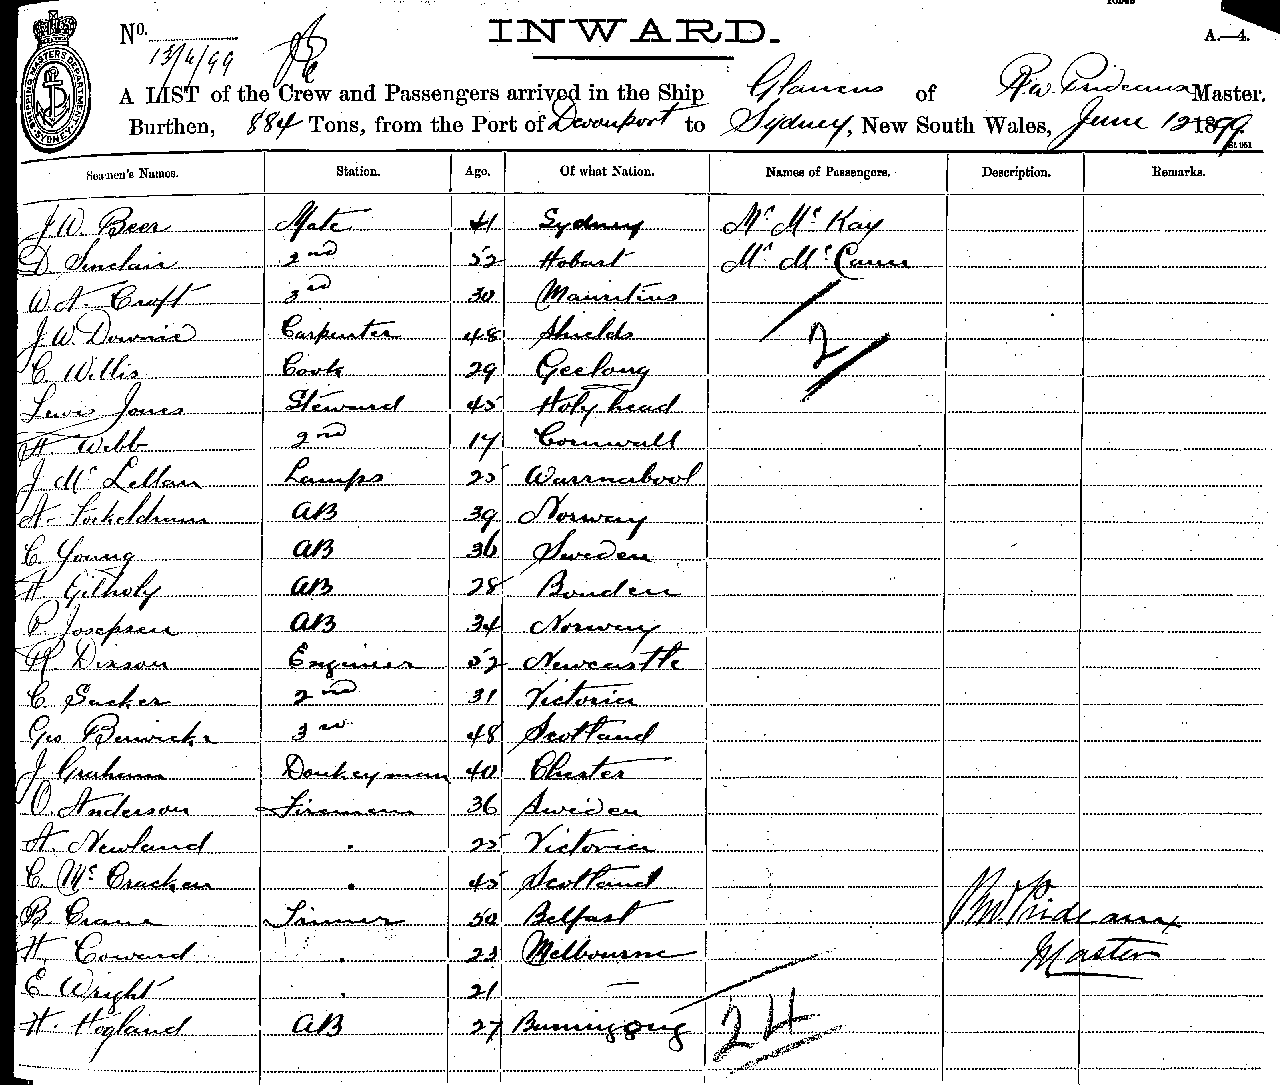 INWARD.
No.
13/6/99
A.—4.
A LIST of the Crew and Passengers arrived in the Ship Glaucus of R.W. Prideaux Master.
Burthen, 884 Tons, from the Port of Devonport to Sydney, New South Wales, June 12 1899
Seamen's Names. Station. Age. Of what Nation. Names of Passengers. Description. Remarks.
J. W. Beer Mate 41 Sydney Mr McKay
D. Sinclair 2nd 52 Hobart Mr McCann
W. H. Craft 3rd 30 Mauritius
J. W. Downie Carpenter 48 Shields
2
C. Willis Cook 29 Geelong
Lewis Jones Steward 45 Holyhead
H. Webb 2nd 17 Cornwall
J. McLellan Lamps 25 Warrnabool
AB 39 Norway
C. Young AB 36 Sweden
H. AB 28
P. Josepsen AB 34 Norway
R. Dixson Engineer 52 Newcastle
C. Sacker 2nd 31 Victoria
Geo Berwick 3rd 48 Scotland
J. Graham Donkeyman 40 Chester
O. Anderson Firemen 36 Sweden
H. Newland . 25 Victoria
C. McCracken . 45 Scotland
B. Crane Trimmer 50 Belfast
R W Prideaux
H. Coward . 23 Melbourne
Master
E. Wright . 21 —
H. Hogland AB 27 Buninyong
24